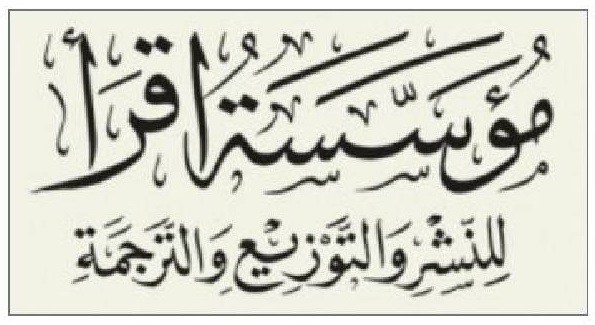 مُؤَسَّسَةُ اقْرَأْ
لِلنَّشْرِ وَالتَّوْزِيْعِ وَالتَّرْجَمَةِ